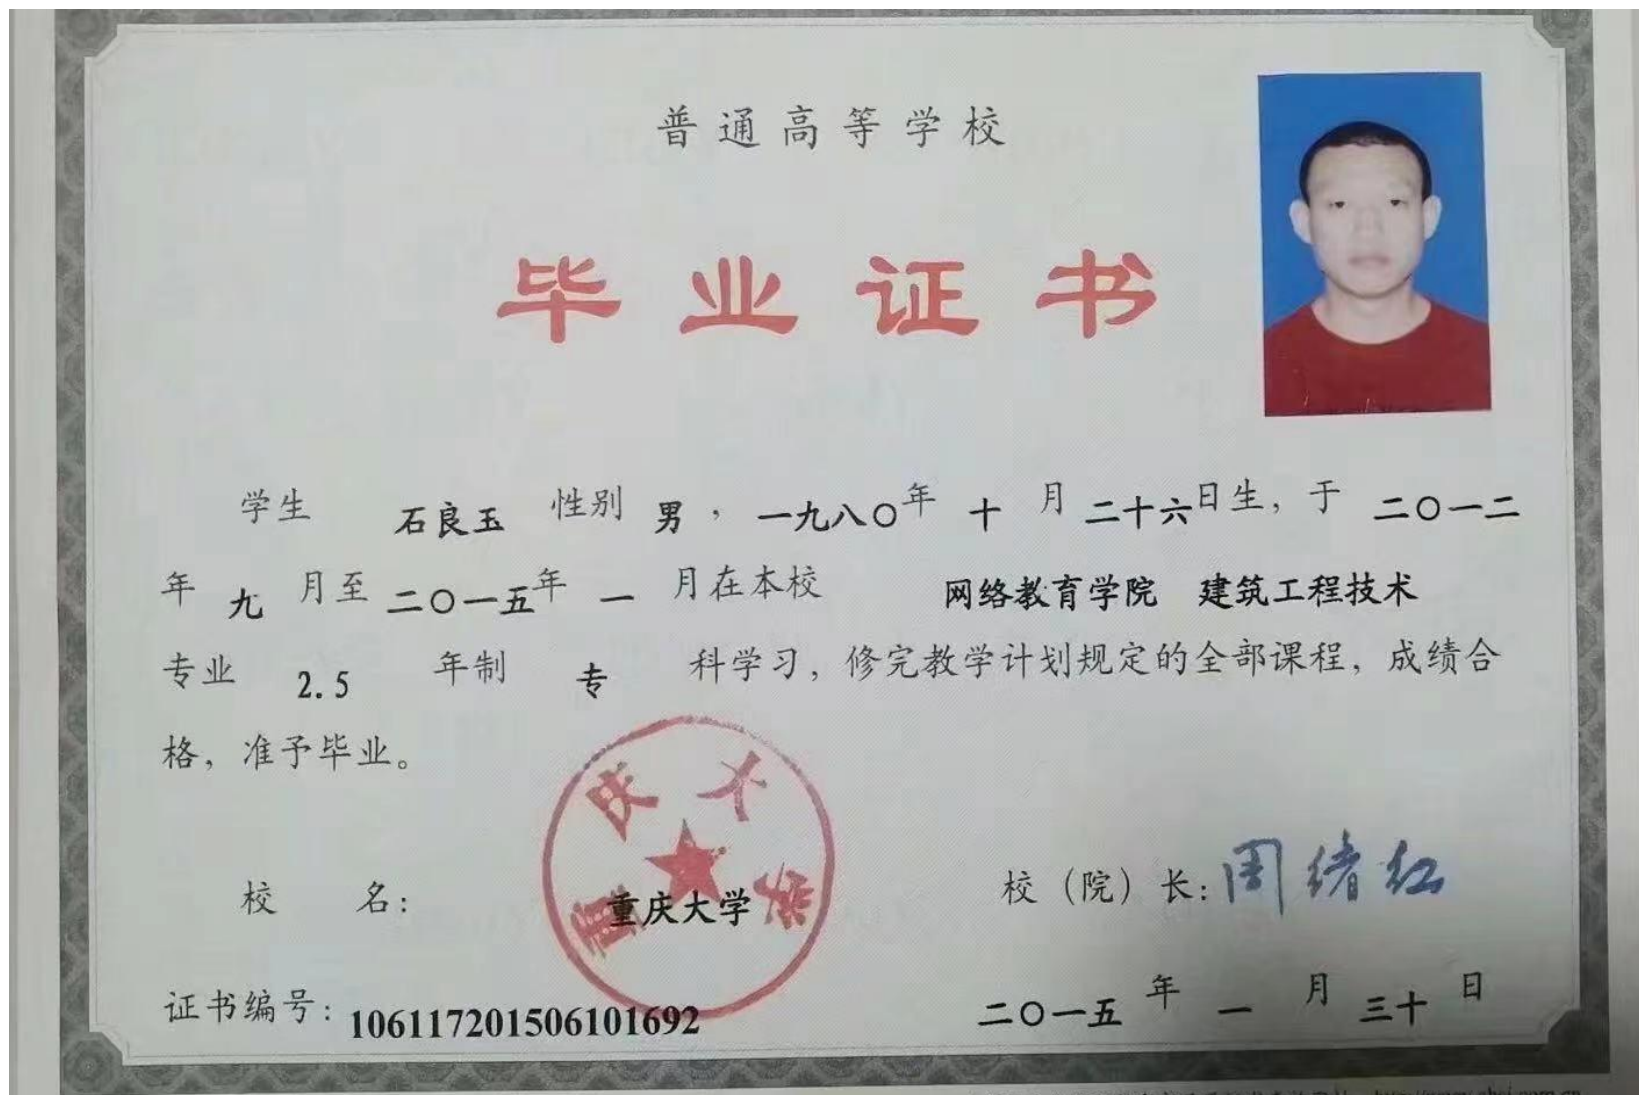 普通高等学校
毕业证书
学生 石良玉 性别 男 ，一九八〇年 十 月 二十六日生，于 二〇一二
年 九 月至 二〇一五年 一 月在本校 网络教育学院 建筑工程技术
专业 2.5 年制 专 科学习，修完教学计划规定的全部课程，成绩合
格，准予毕业。
重庆大学
校 名： 重庆大学 校（院）长：周绪红
证书编号：106117201506101692 二〇一五 年 一 月 三十 日